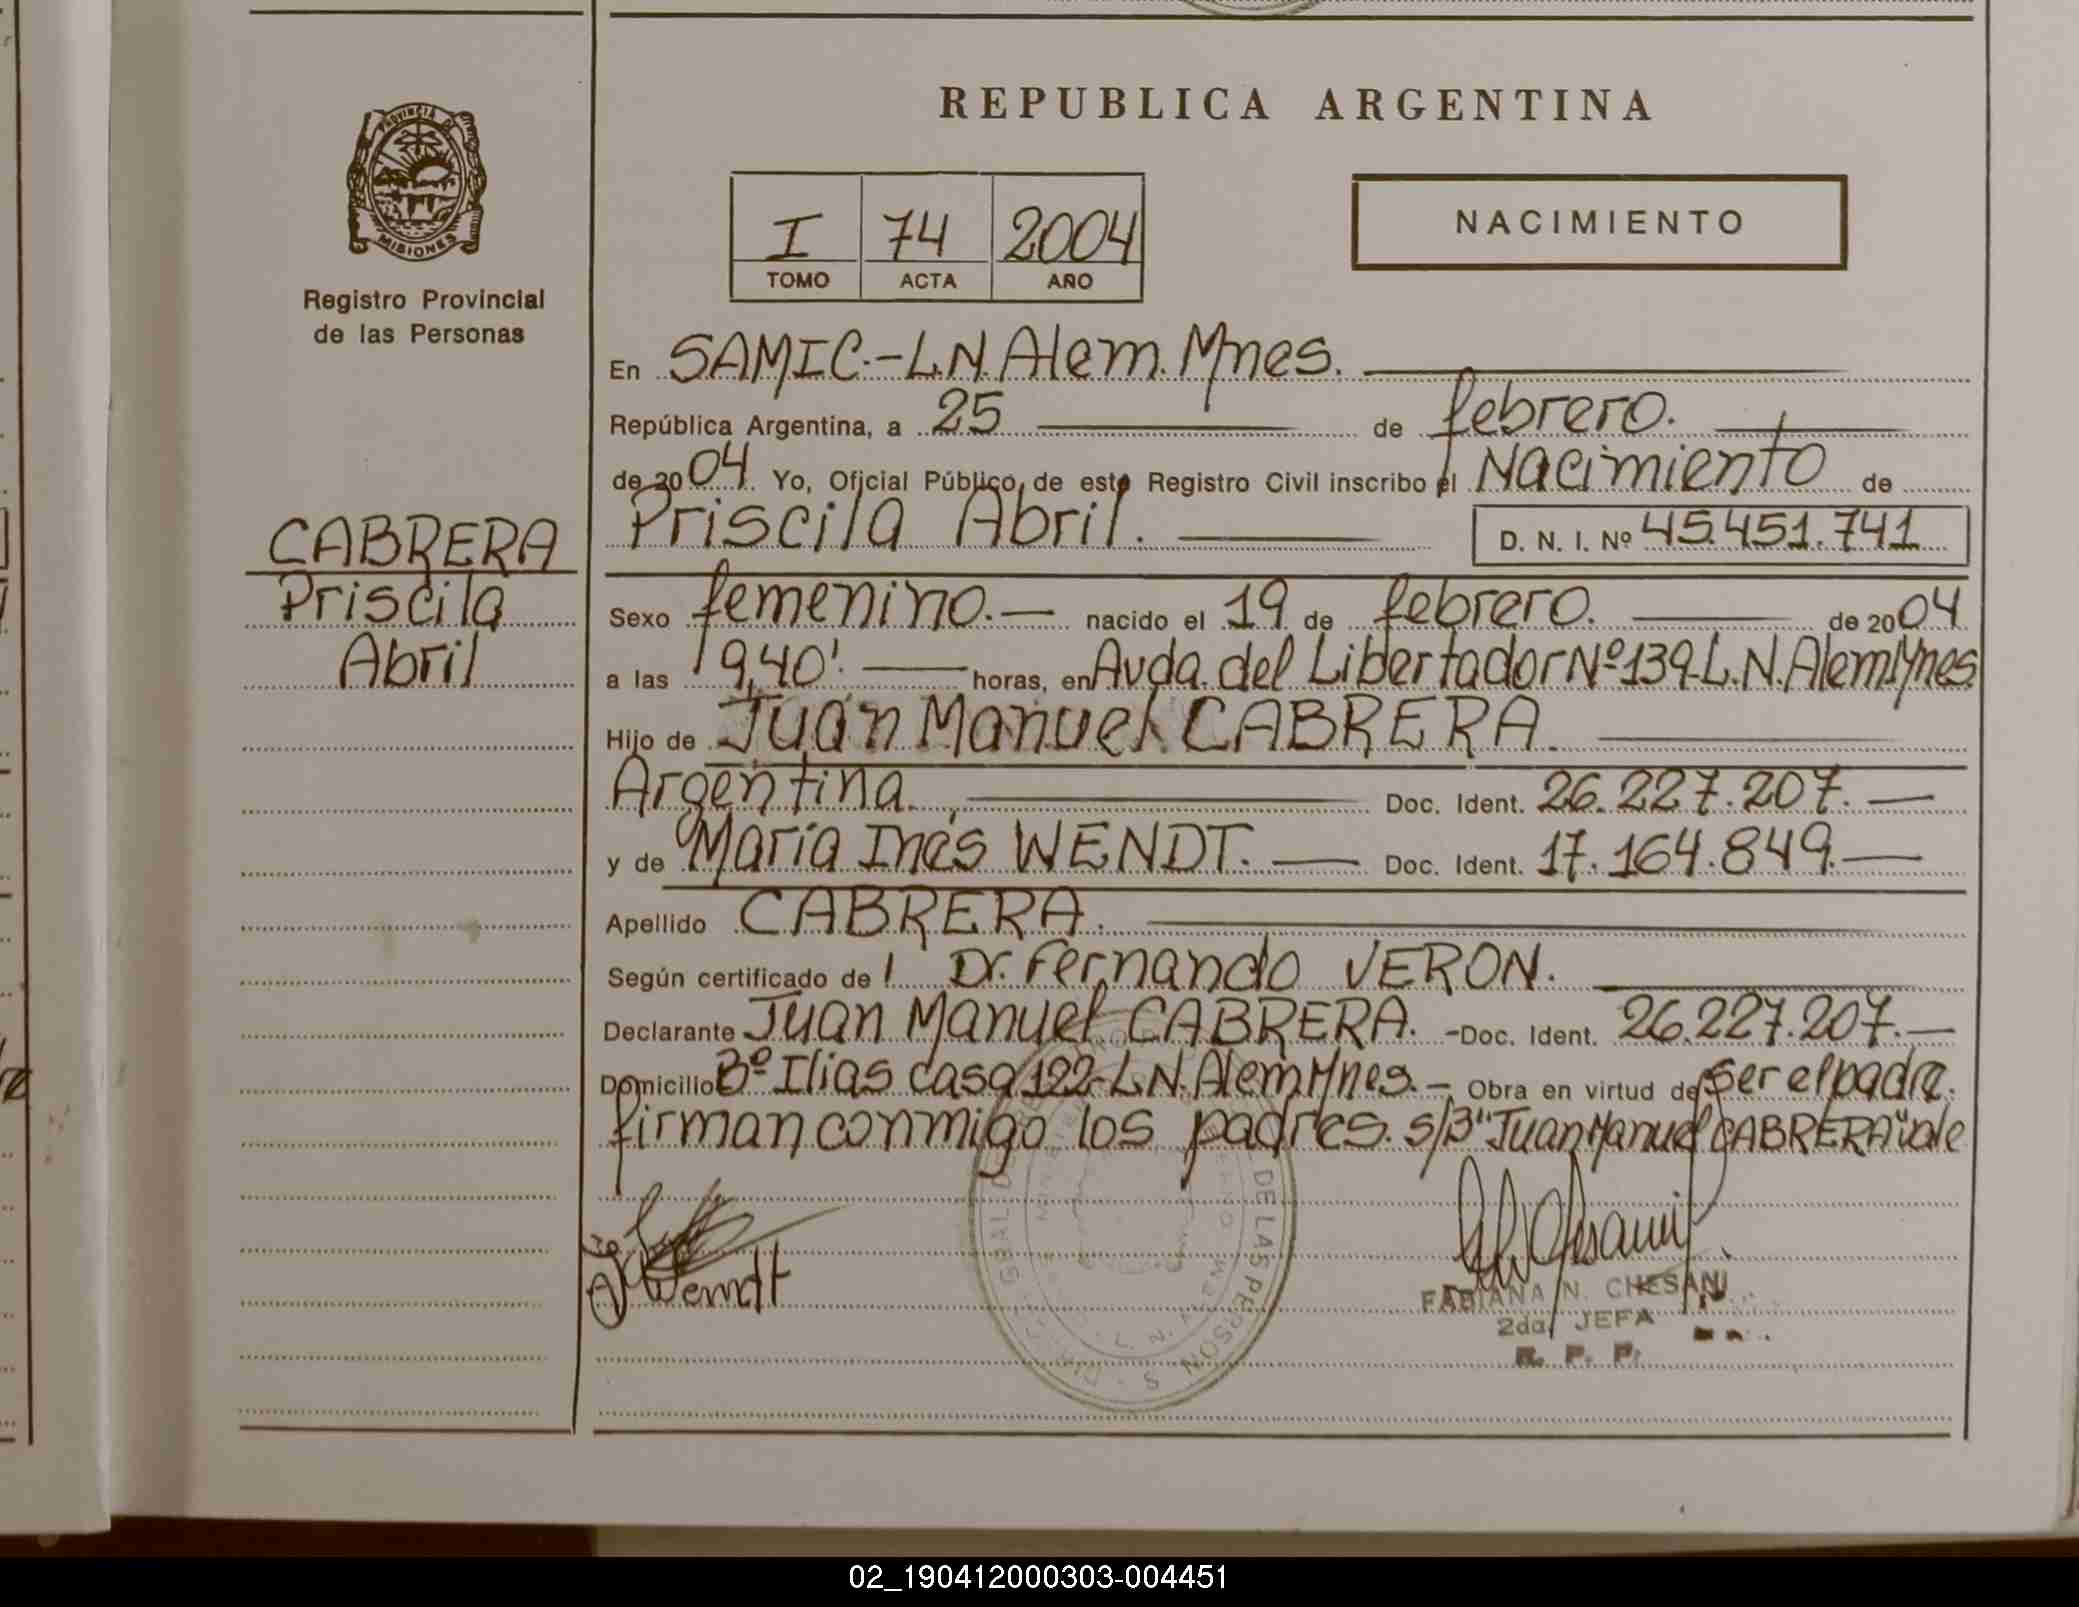 REPUBLICA ARGENTINA
PROVINCIA DE
MISIONES
Registro Provincial
de las Personas
I 74 2004
TOMO ACTA AÑO
NACIMIENTO
En SAMIC.-L.N.Alem.Mnes.
República Argentina, a 25 de febrero.
de 2004. Yo, Oficial Público de este Registro Civil inscribo el Nacimiento de
Priscila Abril.
D. N. I. Nº 45.451.741
CABRERA
Priscila
Abril
Sexo femenino.- nacido el 19 de febrero. de 2004
a las 19,40'. horas, en Avda. del Libertador Nº 139-L.N.Alem Mnes
Hijo de Juan Manuel CABRERA.
Argentina. Doc. Ident. 26.227.207.
y de María Inés WENDT. Doc. Ident. 17.164.849.
Apellido CABRERA.
Según certificado de l Dr. Fernando VERON.
Declarante Juan Manuel CABRERA. -Doc. Ident. 26.227.207.
Domicilio Bº Ilias casa 122-L.N.Alem Mnes.- Obra en virtud de ser el padre.
firman conmigo los padres. s/B "Juan Manuel CABRERA" vale
Wendt
DE LAS PERSON S
FABIANA N. CHESANI
2da. JEFA
R. P. P.
02_190412000303-004451